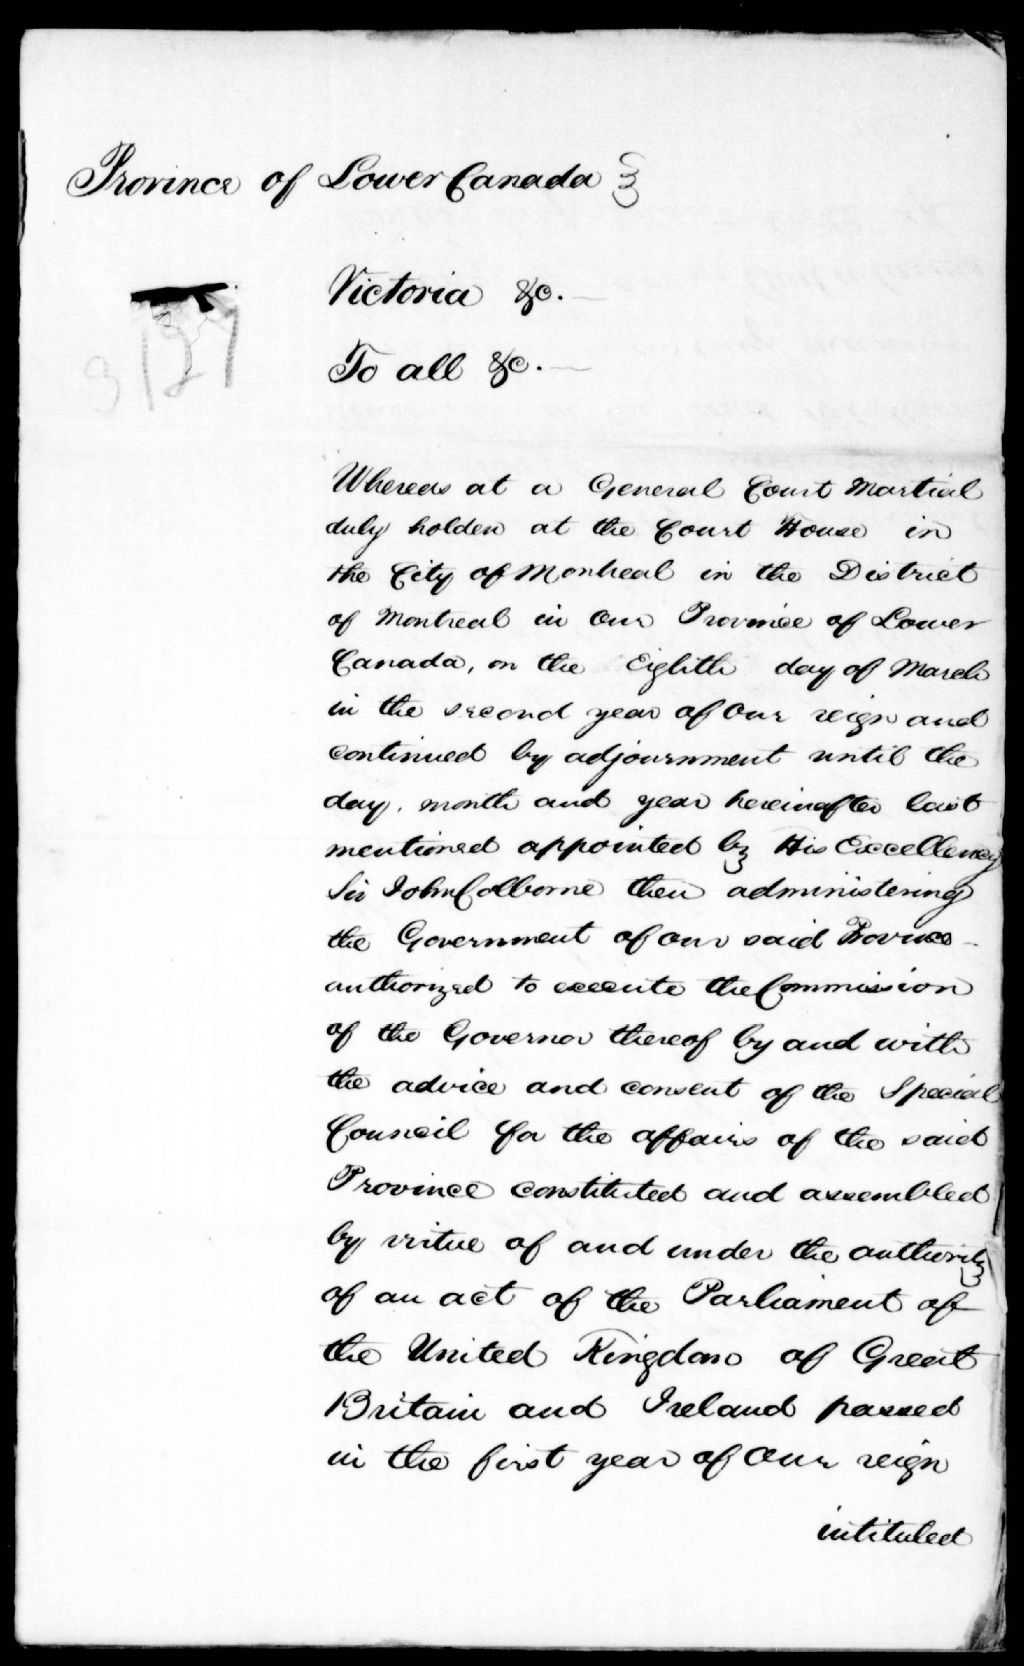 Province of Lower Canada
Victoria &c.
To all &c.
Whereas at a General Court Martial
duly holden at the Court House in
the City of Montreal in the District
of Montreal in Our Province of Lower
Canada, on the Eighth day of March
in the second year of Our reign and
continued by adjournment until the
day, month and year hereinafter last
mentioned appointed by His Excellency
Sir John Colborne then administering
the Government of our said Province
authorized to execute the Commission
of the Governor thereof by and with
the advice and consent of the Special
Council for the affairs of the said
Province constituted and assembled
by virtue of and under the authority
of an act of the Parliament of
the United Kingdom of Great
Britain and Ireland passed
in the first year of Our reign
intituled